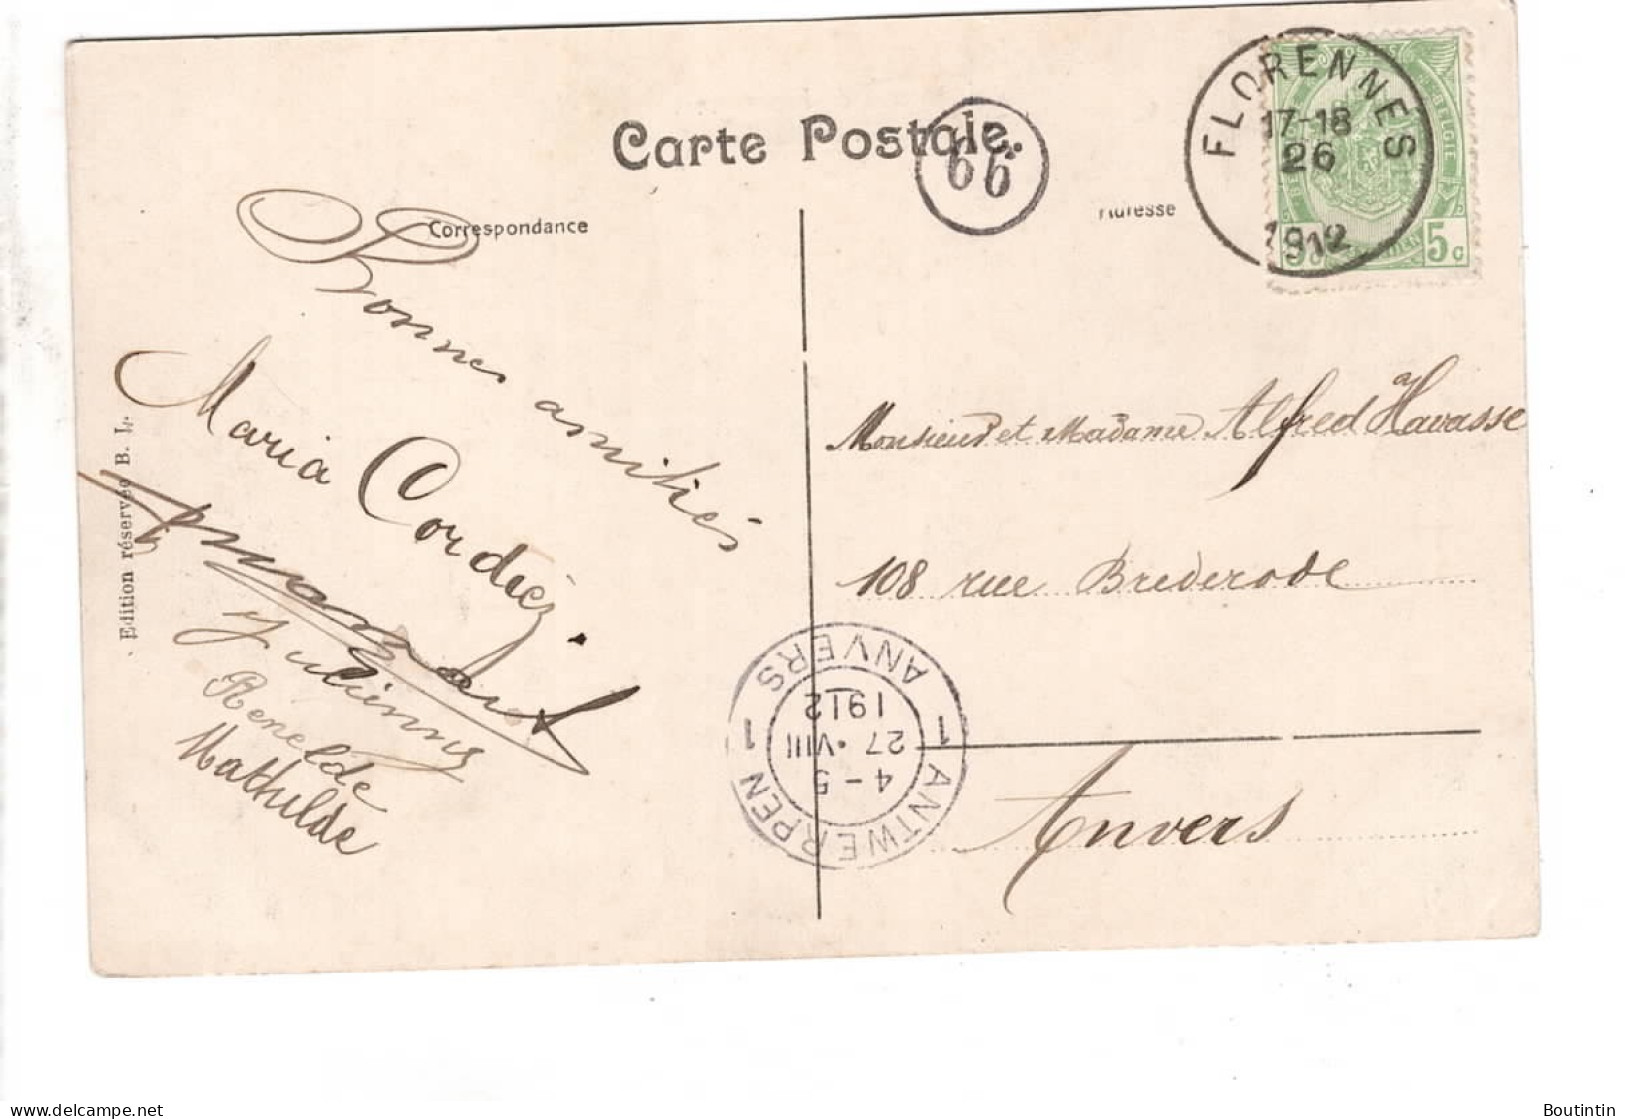 Carte Postale.
66
Correspondance
Adresse
FLORENNES
17-18
26
1912
5c
Bonnes amitiés
Maria Cordiez.
Julienne
Renelde
Mathilde
Edition réservée B. L.
Monsieur et Madame Alfred Havasse
108 rue Brederode
Anvers
1 ANTWERPEN 1 ANVERS
4-5
27·VIII
1912
Boutintin